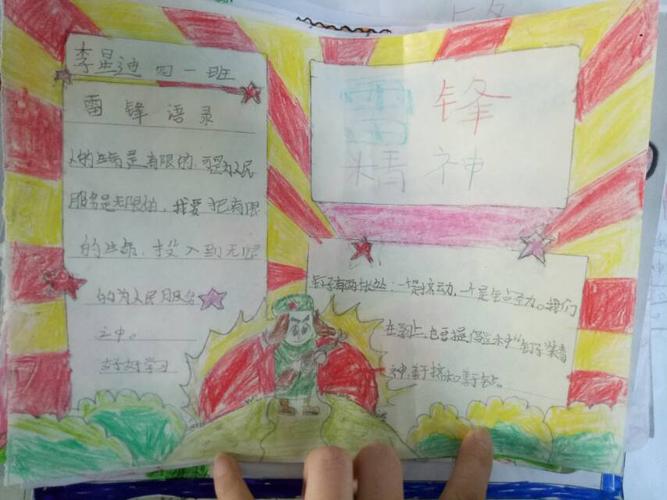 李星迪 四一班
雷锋语录
人的生命是有限的，可是为人民
服务是无限的，我要把有限
的生命，投入到无限
的为人民服务
之中。
好好学习
雷锋
精神
钉子有两个长处：一个是挤劲，一个是钻劲。我们
在学习上，也要提倡这种"钉子"
神，善于挤和善于钻。